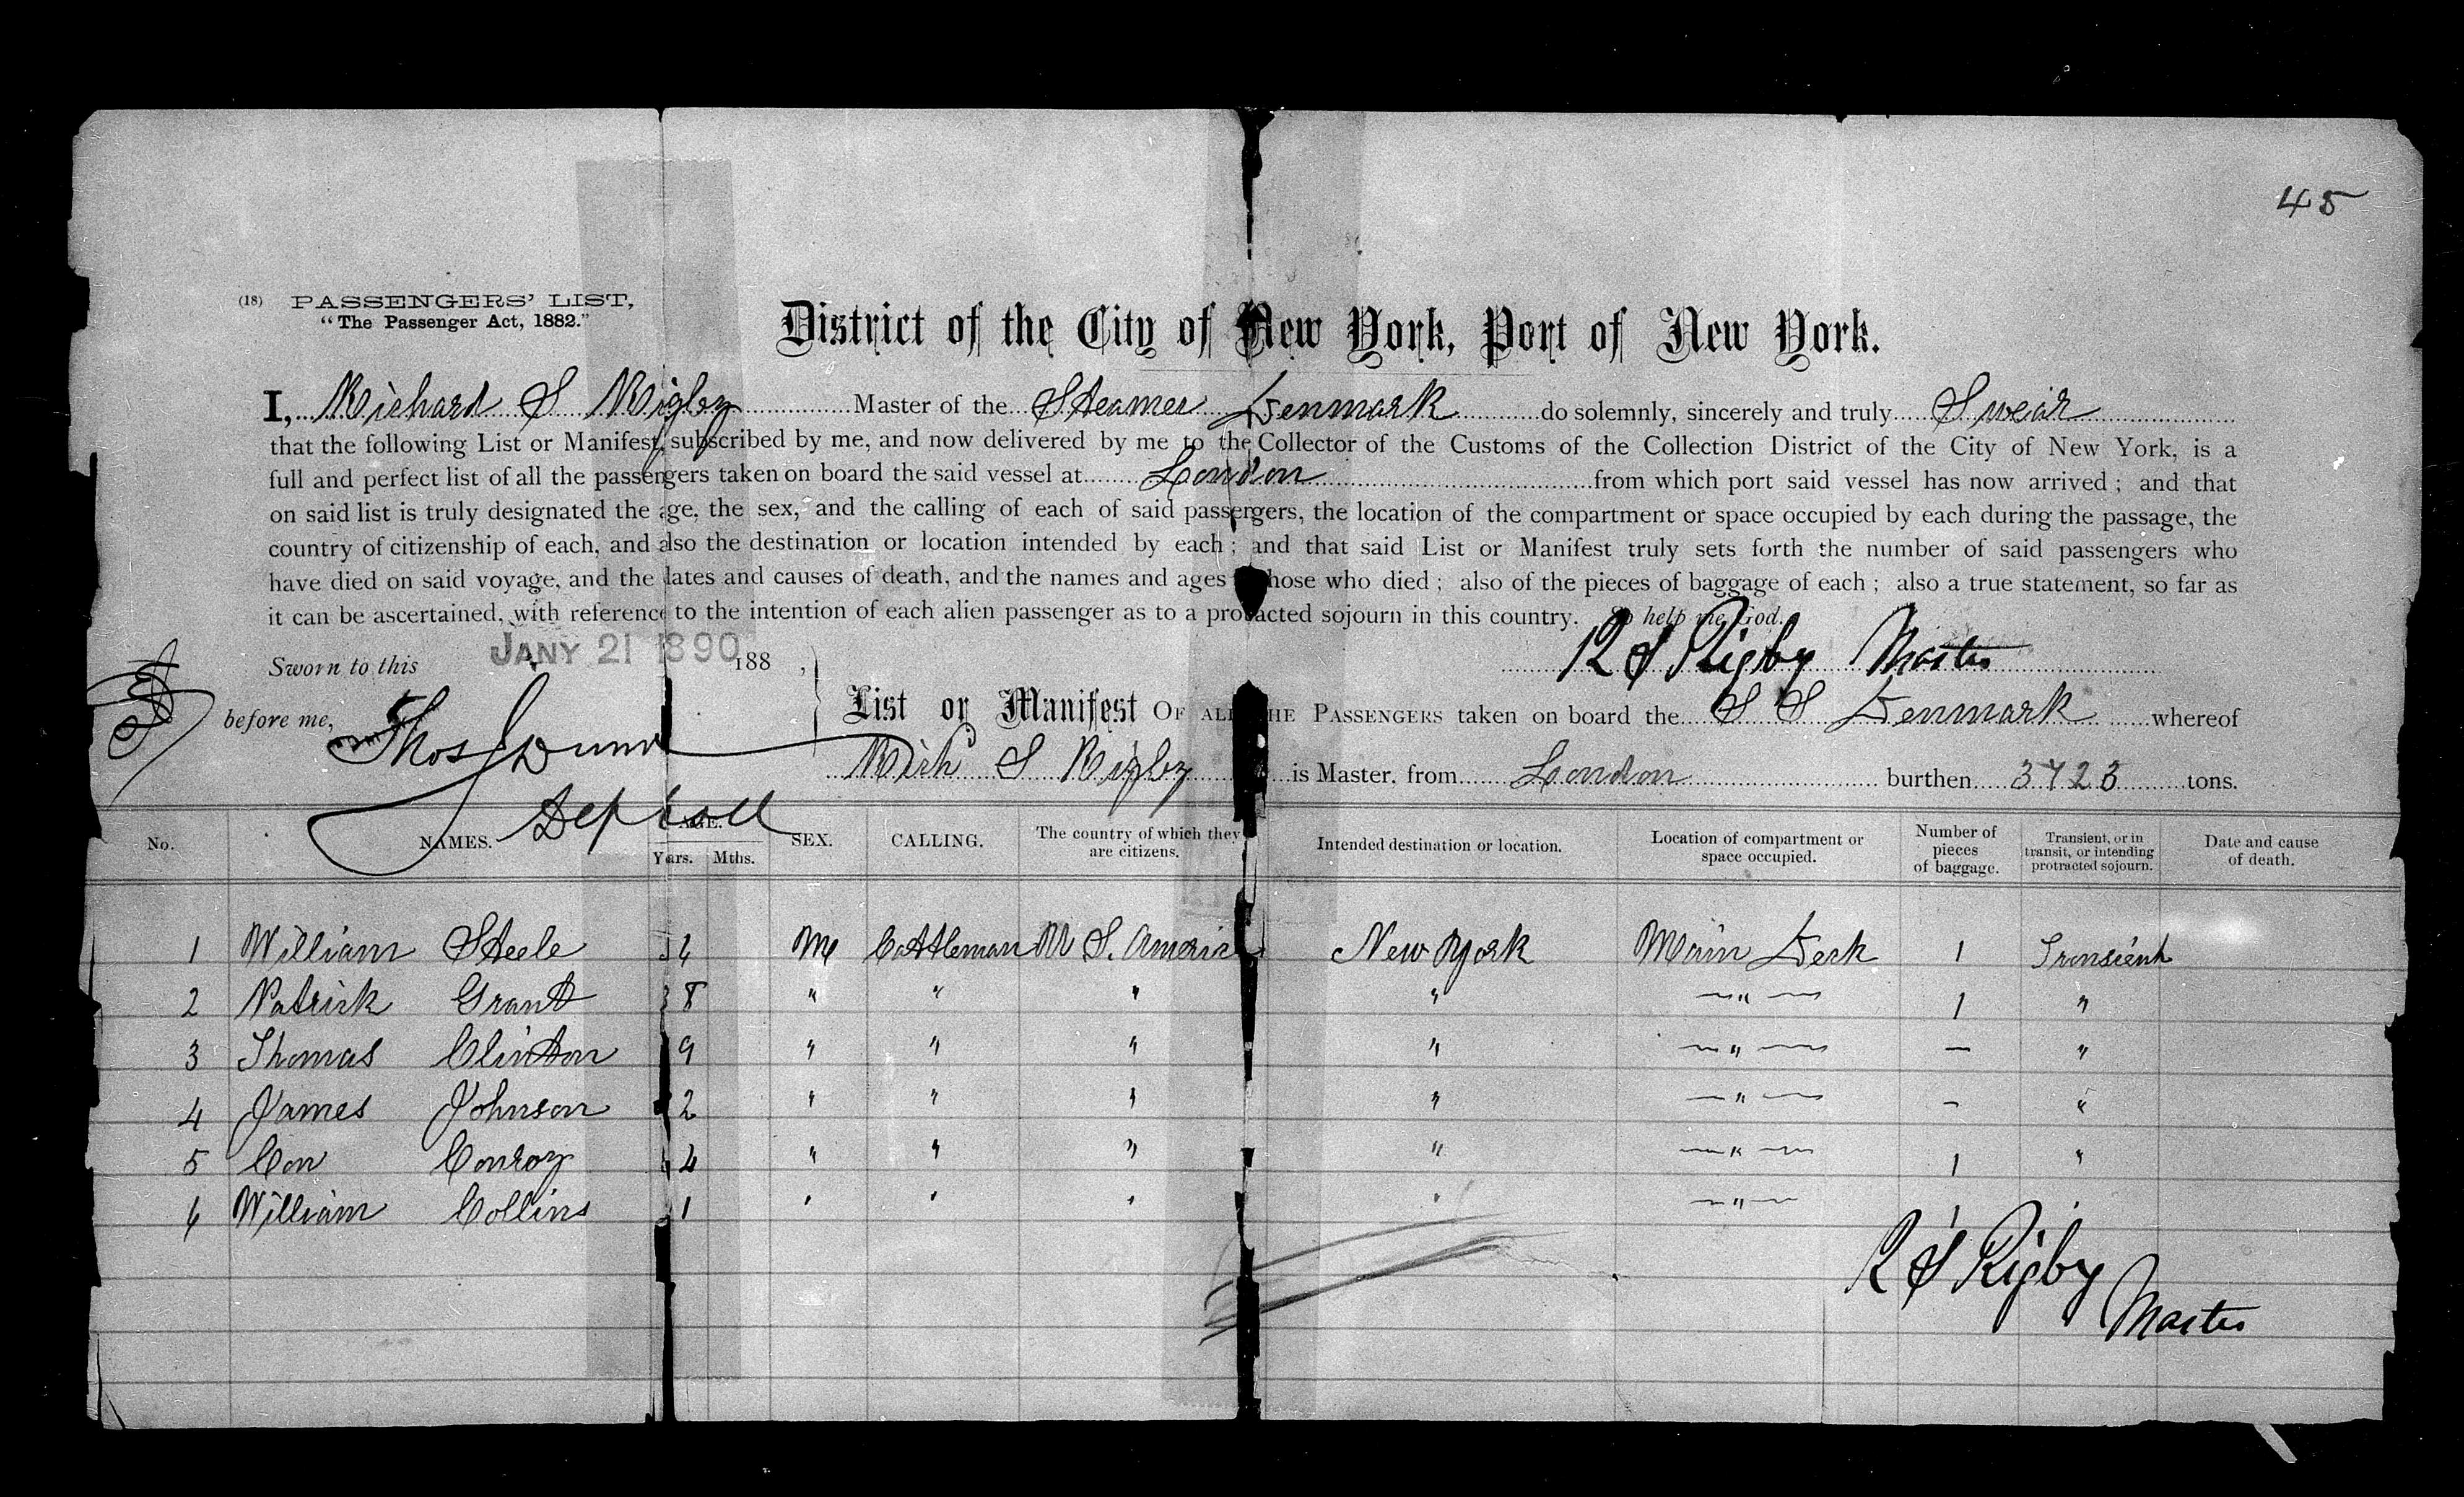 45
(18) PASSENGERS' LIST,
"The Passenger Act, 1882."
District of the City of New York, Port of New York.
I, Richard S Rigby Master of the Steamer Denmark do solemnly, sincerely and truly Swear
that the following List or Manifest, subscribed by me, and now delivered by me to the Collector of the Customs of the Collection District of the City of New York, is a
full and perfect list of all the passengers taken on board the said vessel at London from which port said vessel has now arrived; and that
on said list is truly designated the age, the sex, and the calling of each of said passengers, the location of the compartment or space occupied by each during the passage, the
country of citizenship of each, and also the destination or location intended by each; and that said List or Manifest truly sets forth the number of said passengers who
have died on said voyage, and the dates and causes of death, and the names and ages those who died; also of the pieces of baggage of each; also a true statement, so far as
it can be ascertained, with reference to the intention of each alien passenger as to a protracted sojourn in this country. So help me God.
Sworn to this JANY 21 1890 188 , R S Rigby Master
before me, Thos Dunn
Dep Coll
List or Manifest OF ALL THE PASSENGERS taken on board the S S Denmark whereof
Rich S Rigby is Master, from London burthen 3723 tons.
No. NAMES. AGE. Years. Mths. SEX. CALLING. The country of which they are citizens. Intended destination or location. Location of compartment or space occupied. Number of pieces of baggage. Transient, or in transit, or intending protracted sojourn. Date and cause of death.
1 William Steele M Cattleman U S. America New York Main Deck 1 Transient
2 Patrick Grant 38 " " " " " 1 "
3 Thomas Clinton 9 " " " " " — "
4 James Johnson 2 " " " " " — "
5 Con Conroy " " " " " 1 "
6 William Collins 1 " " " " " 1 "
R S Rigby
Master